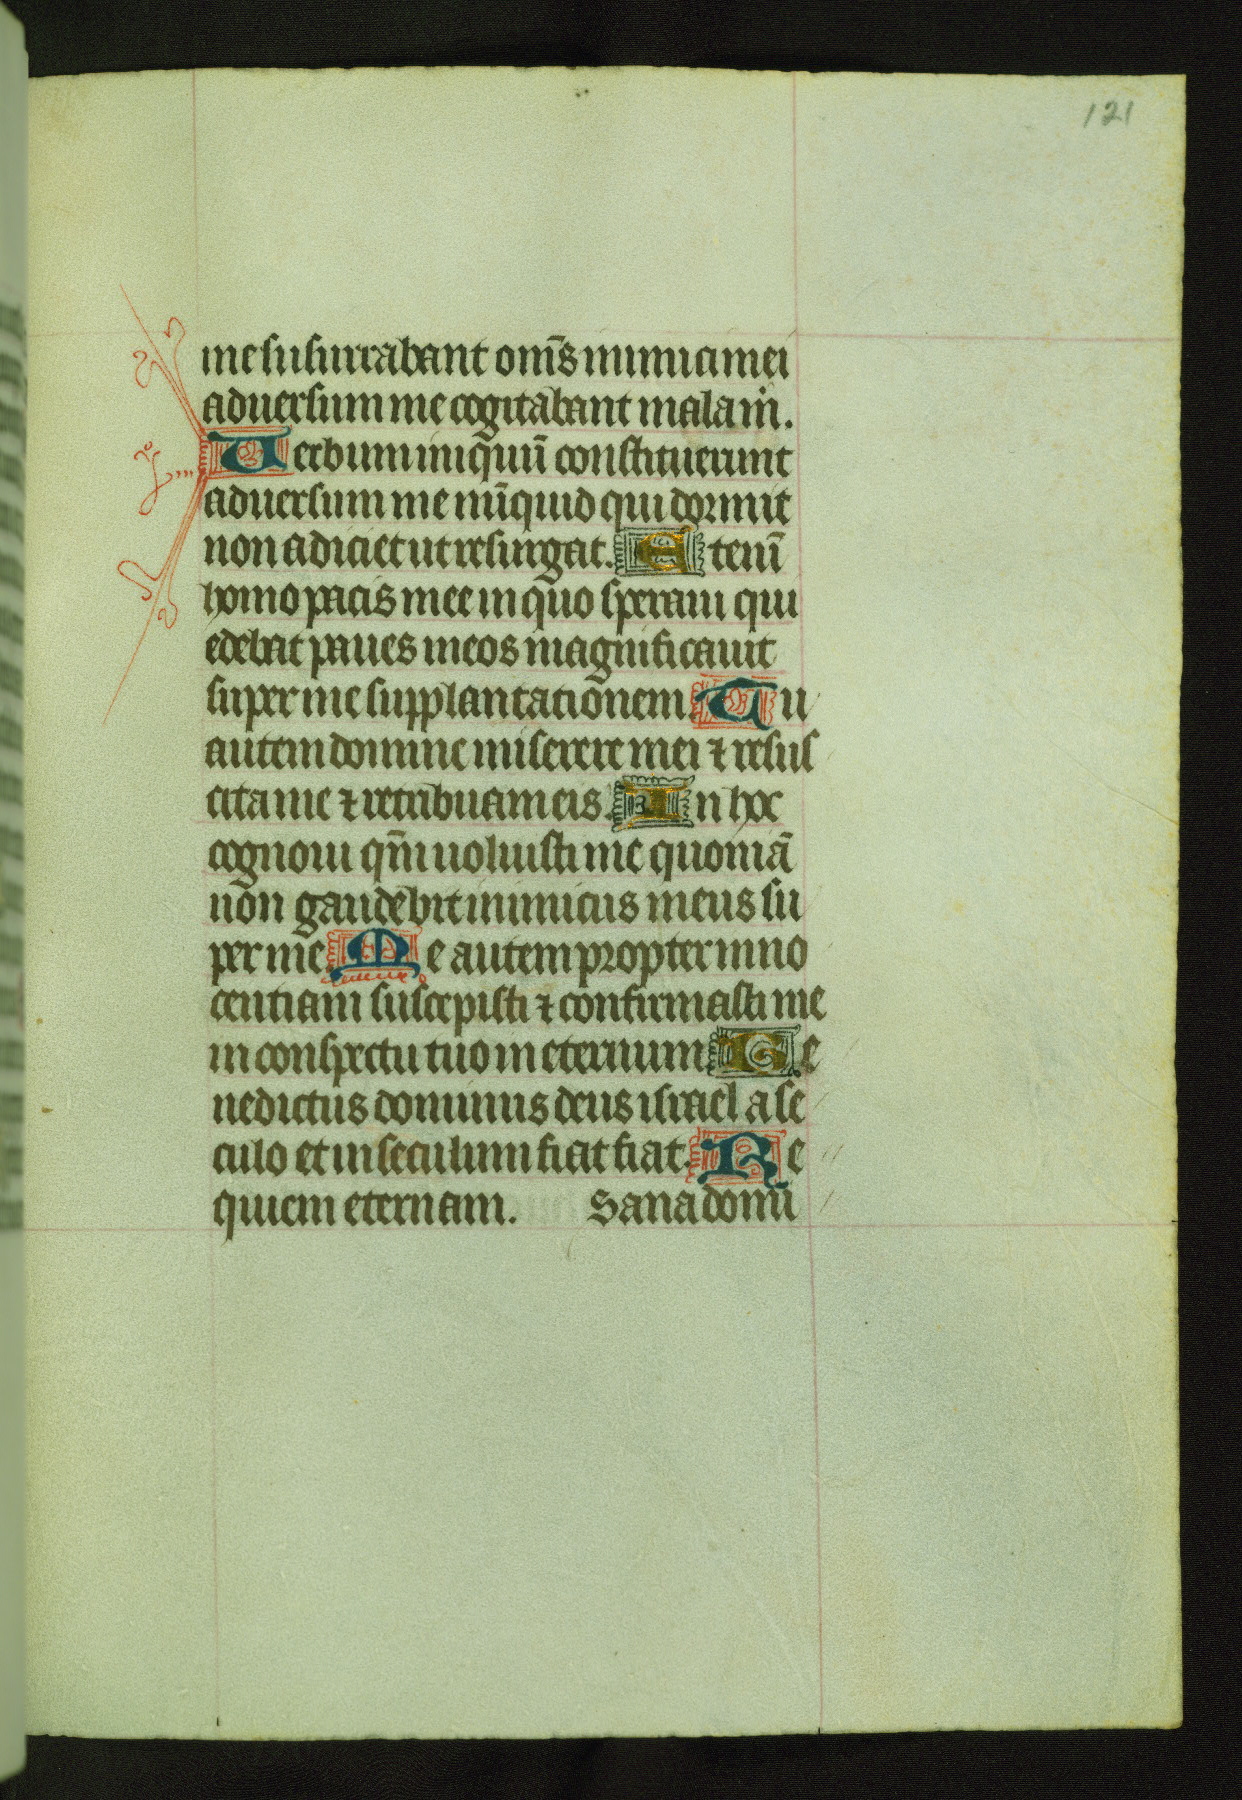 121
me susurrabant om̄s inimici mei
aduersum me cogitabant mala ṁ.
Uerbum iniquū constituerunt
aduersum me nūquid qui dormit
non adiciet ut resurgat. Etenī
homo pacis mee in quo speraui qui
edebat panes meos magnificauit
super me supplantationem. Tu
autem domine miserere mei ⁊ resus
cita me ⁊ retribuam eis. In hoc
cognoui qm̄ uoluisti me quoniā
non gaudebit inimicus meus su
per me. Me autem propter inno
centiam suscepisti ⁊ confirmasti me
in conspectu tuo in eternum. Be
nedictus dominus deus israel a se
culo et in seculum fiat fiat. Re
quiem eternam. Sana domi